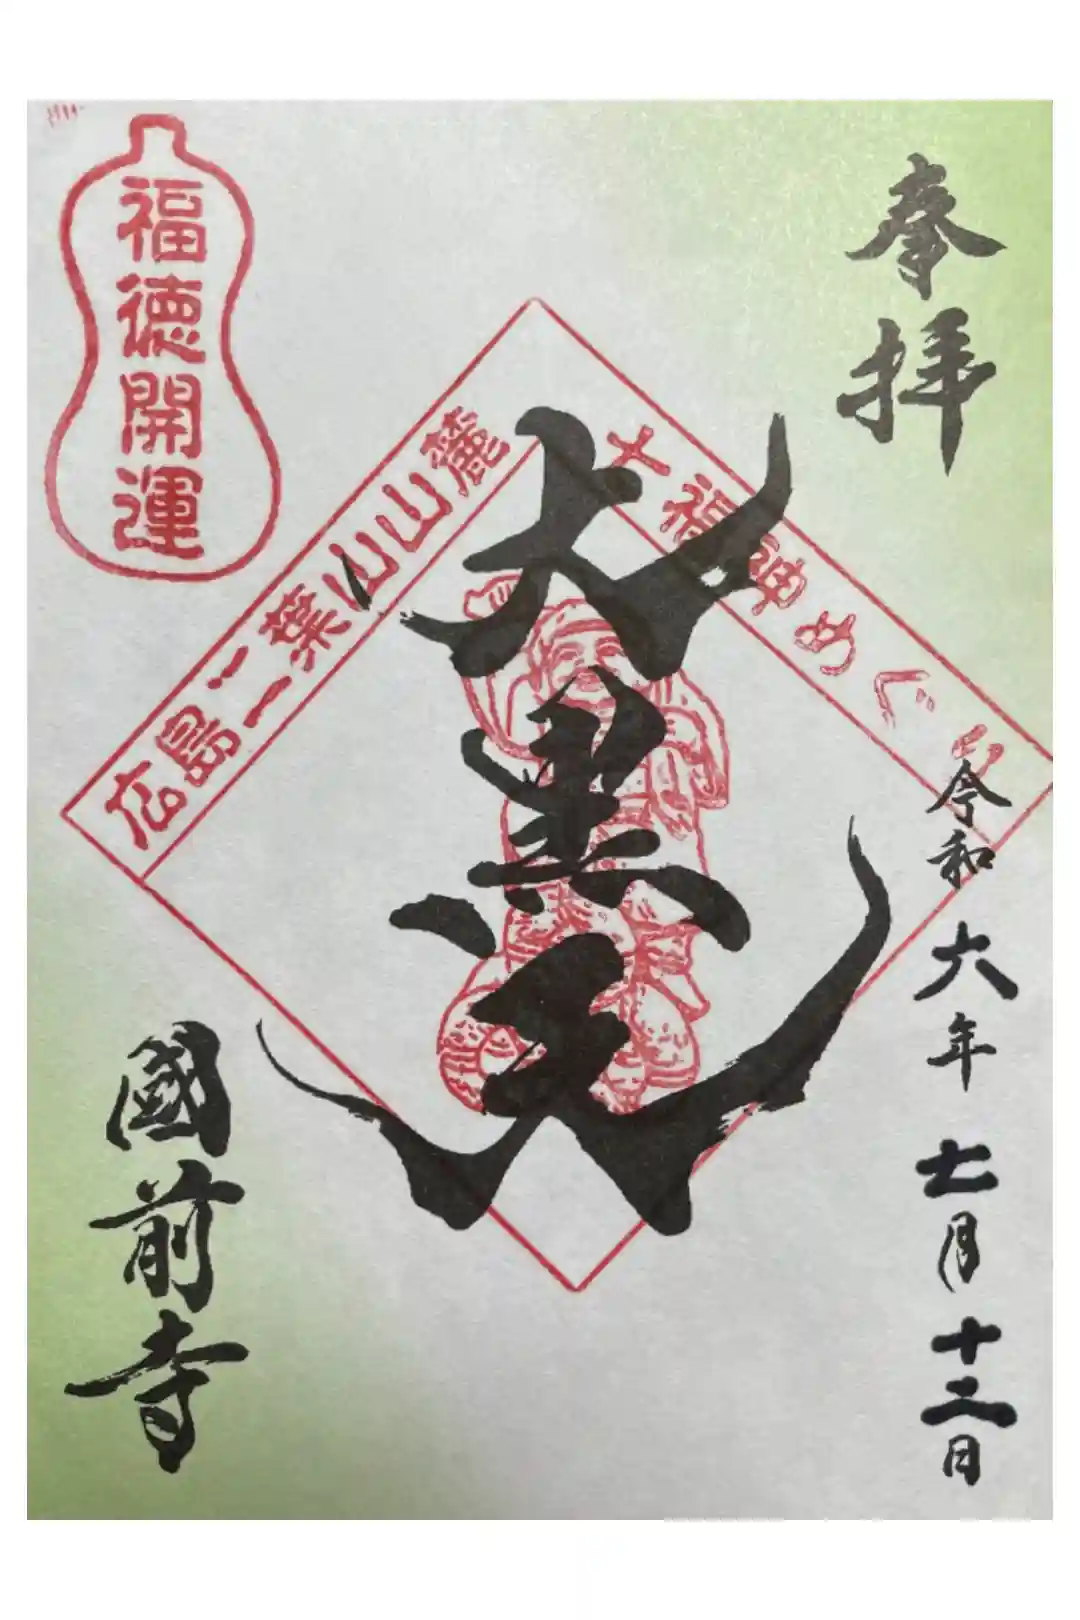 奉拝
令和六年七月十二日
七福神めぐり
大黒天
広島二葉山山麓
福徳開運
國前寺